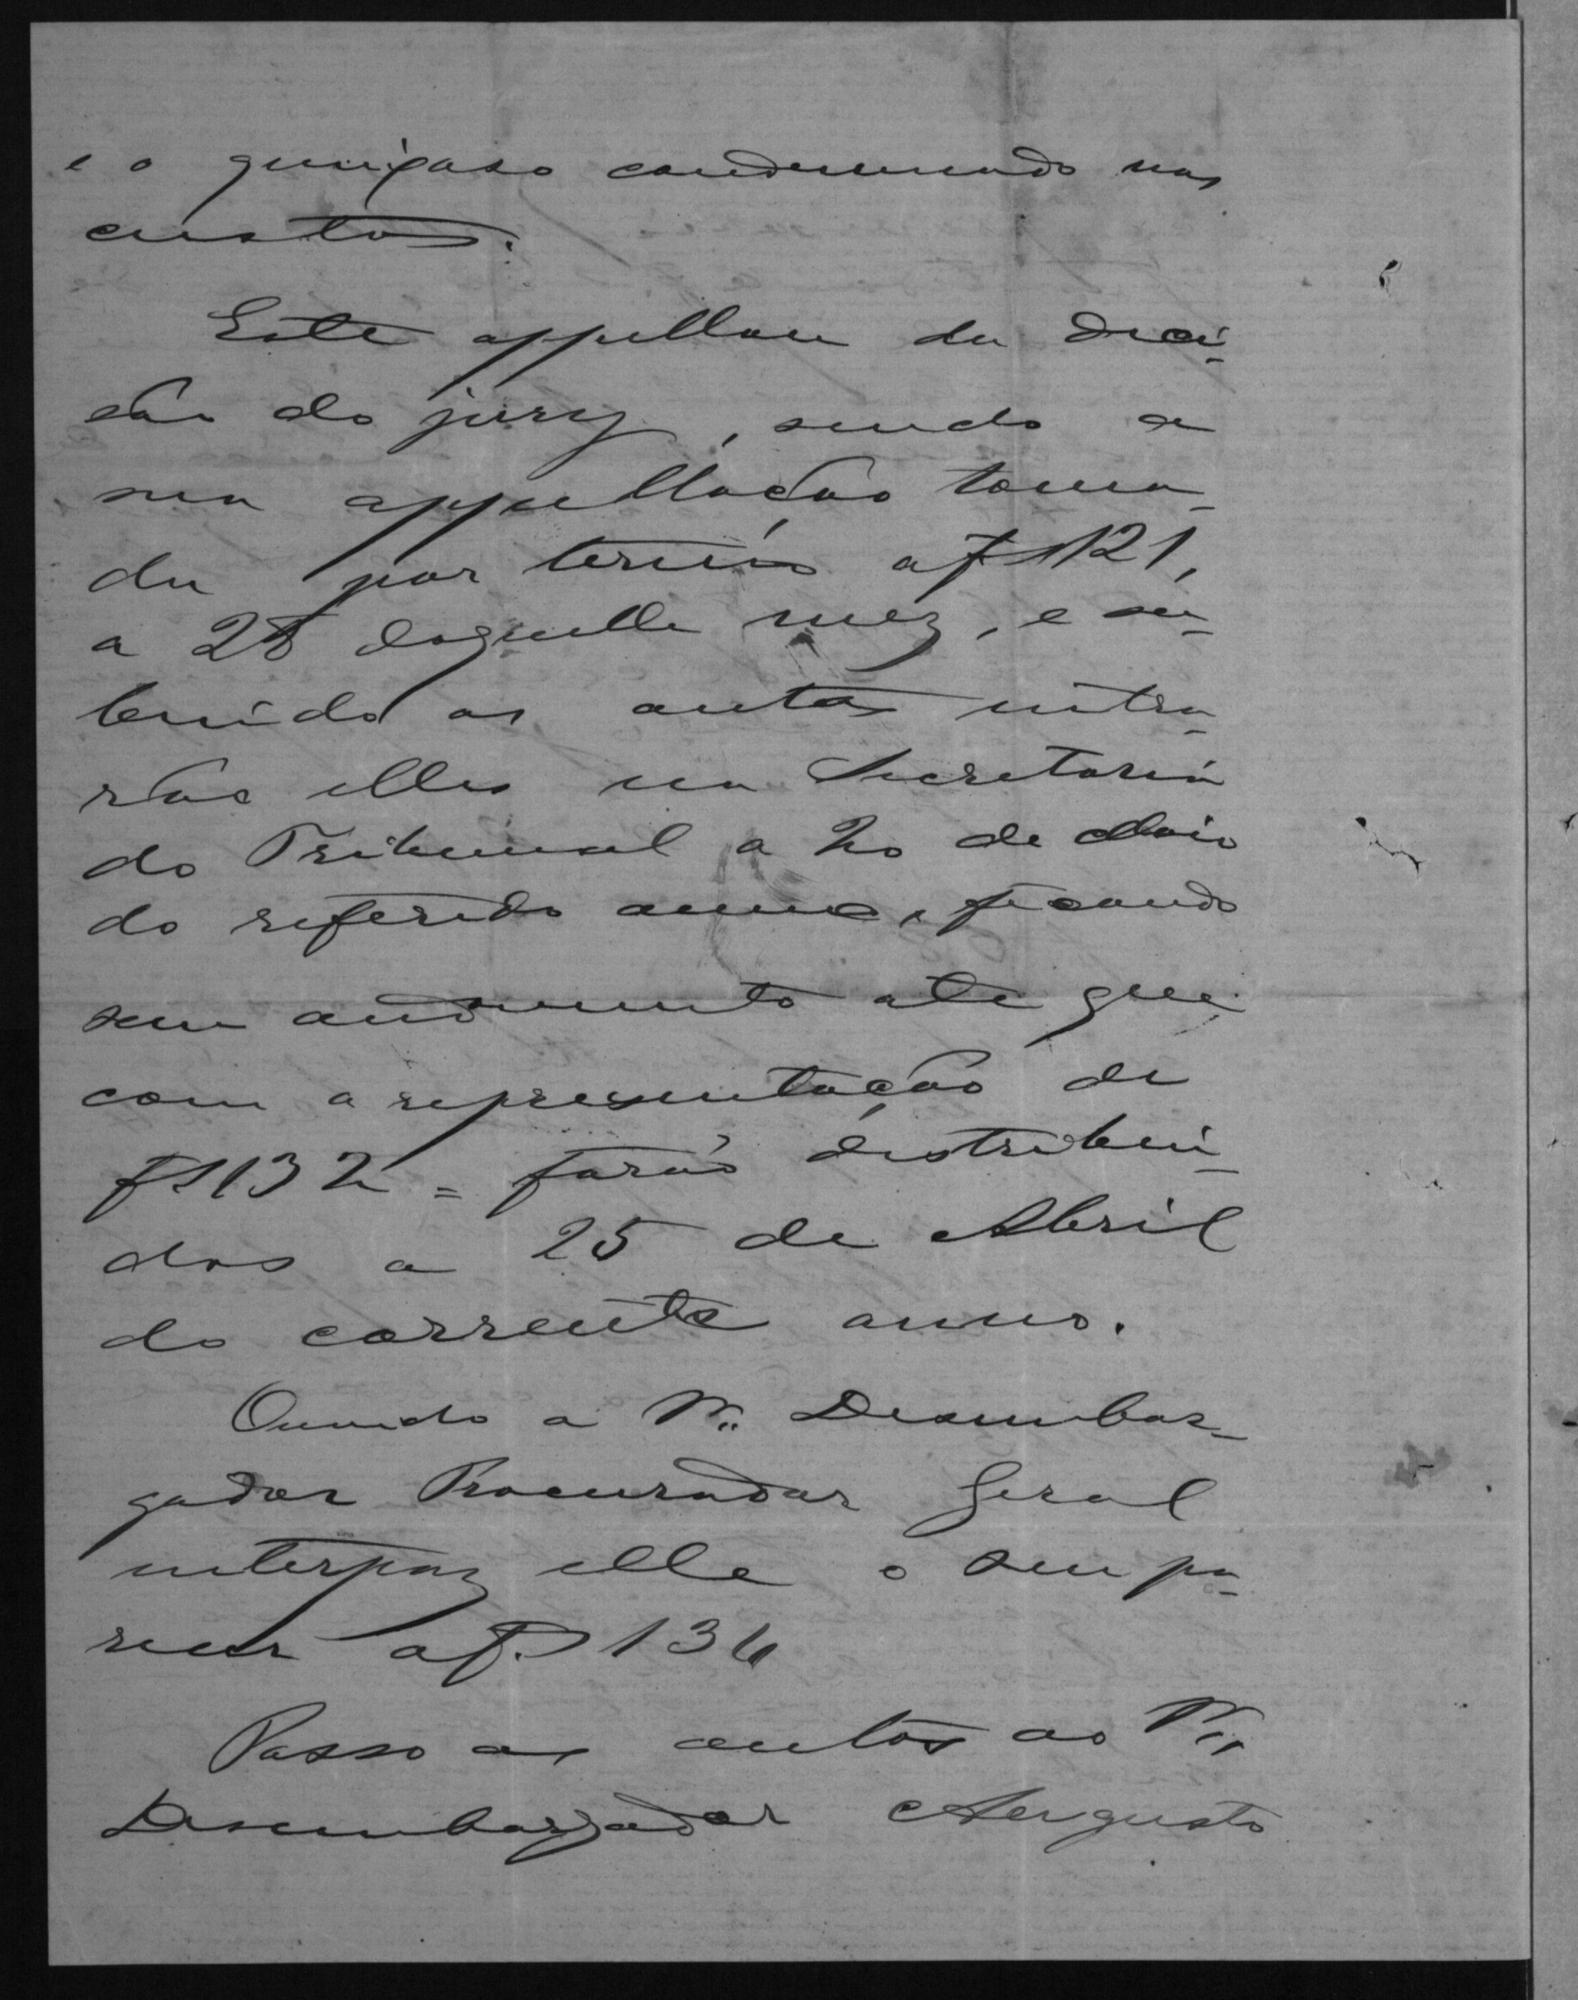 e o queixoso condemnado nas
custas.
Este appellou da deci-
são do jury, sendo a
sua appellação toma-
da por termo a fs 121,
a 28 daquelle mez, e su-
bindo os autos entra-
rão elles na Secretaria
do Tribunal a 20 de Maio
do referido anno, ficando
sem andamento até que
com a representação de
fs 132 = forão distribui-
dos a 25 de Abril
do corrente anno.
Ouvido o Sr. Desembar-
gador Procurador Geral
interpoz elle o seu pa-
recer a fs
Passo os autos ao Sr.
Desembargador Augusto